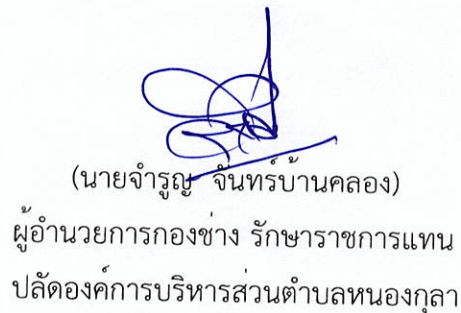 (นายจำรูญ จันทร์บ้านคลอง)
ผู้อำนวยการกองช่าง รักษาราชการแทน
ปลัดองค์การบริหารส่วนตำบลหนองกุลา